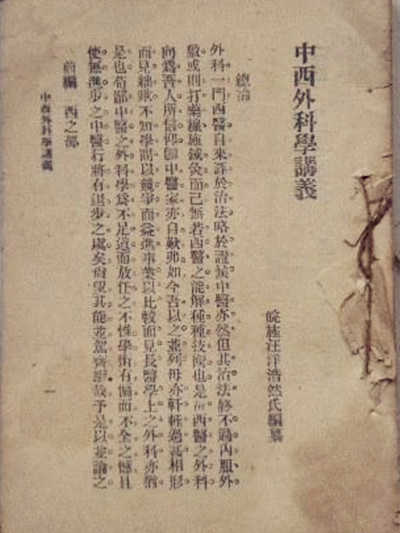 中西外科學講義
皖旌汪洋浩然氏編纂
總論
外科一門西醫自來詳於治法略於證候中醫亦然但其治法終不過內服外
敷或則打藥線施鍼灸而已無若西醫之能解種種技術也是故西醫之外科
向爲吾人所信仰卽中醫家亦自歎弗如今吾以之並列毋亦軒輊過甚相形
而見絀歟不知學問以競爭而益進事業以比較而見長醫學上之外科亦猶
是也苟鄙中醫之外科學爲不足道而放任之不惟學術有偏而不全之憾且
使無進步之中醫行將有退步之虞矣尚望其能並駕齊驅哉予是以並論之
前編 西之部
中西外科學講義
一